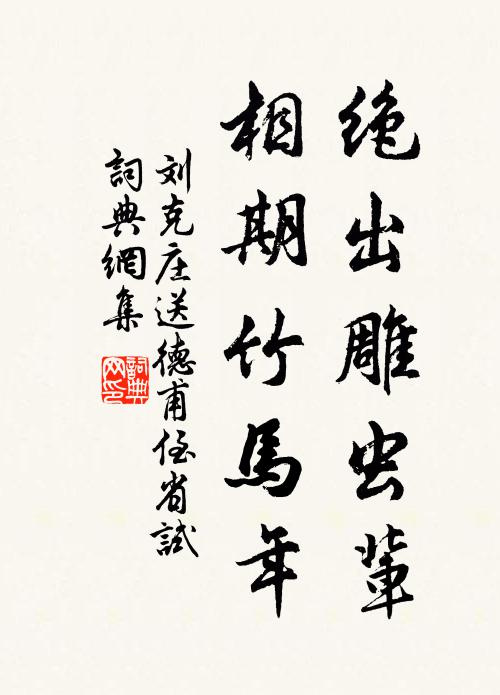 绝出雕虫辈
相期竹馬年
刘克庄送德甫侄省試
詞典網集
詞典网印